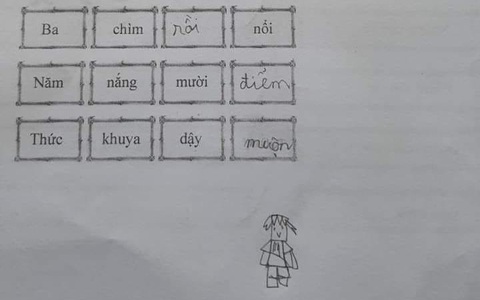 Ba chìm rồi nổi
Năm nắng mười điểm
Thức khuya dậy muộn